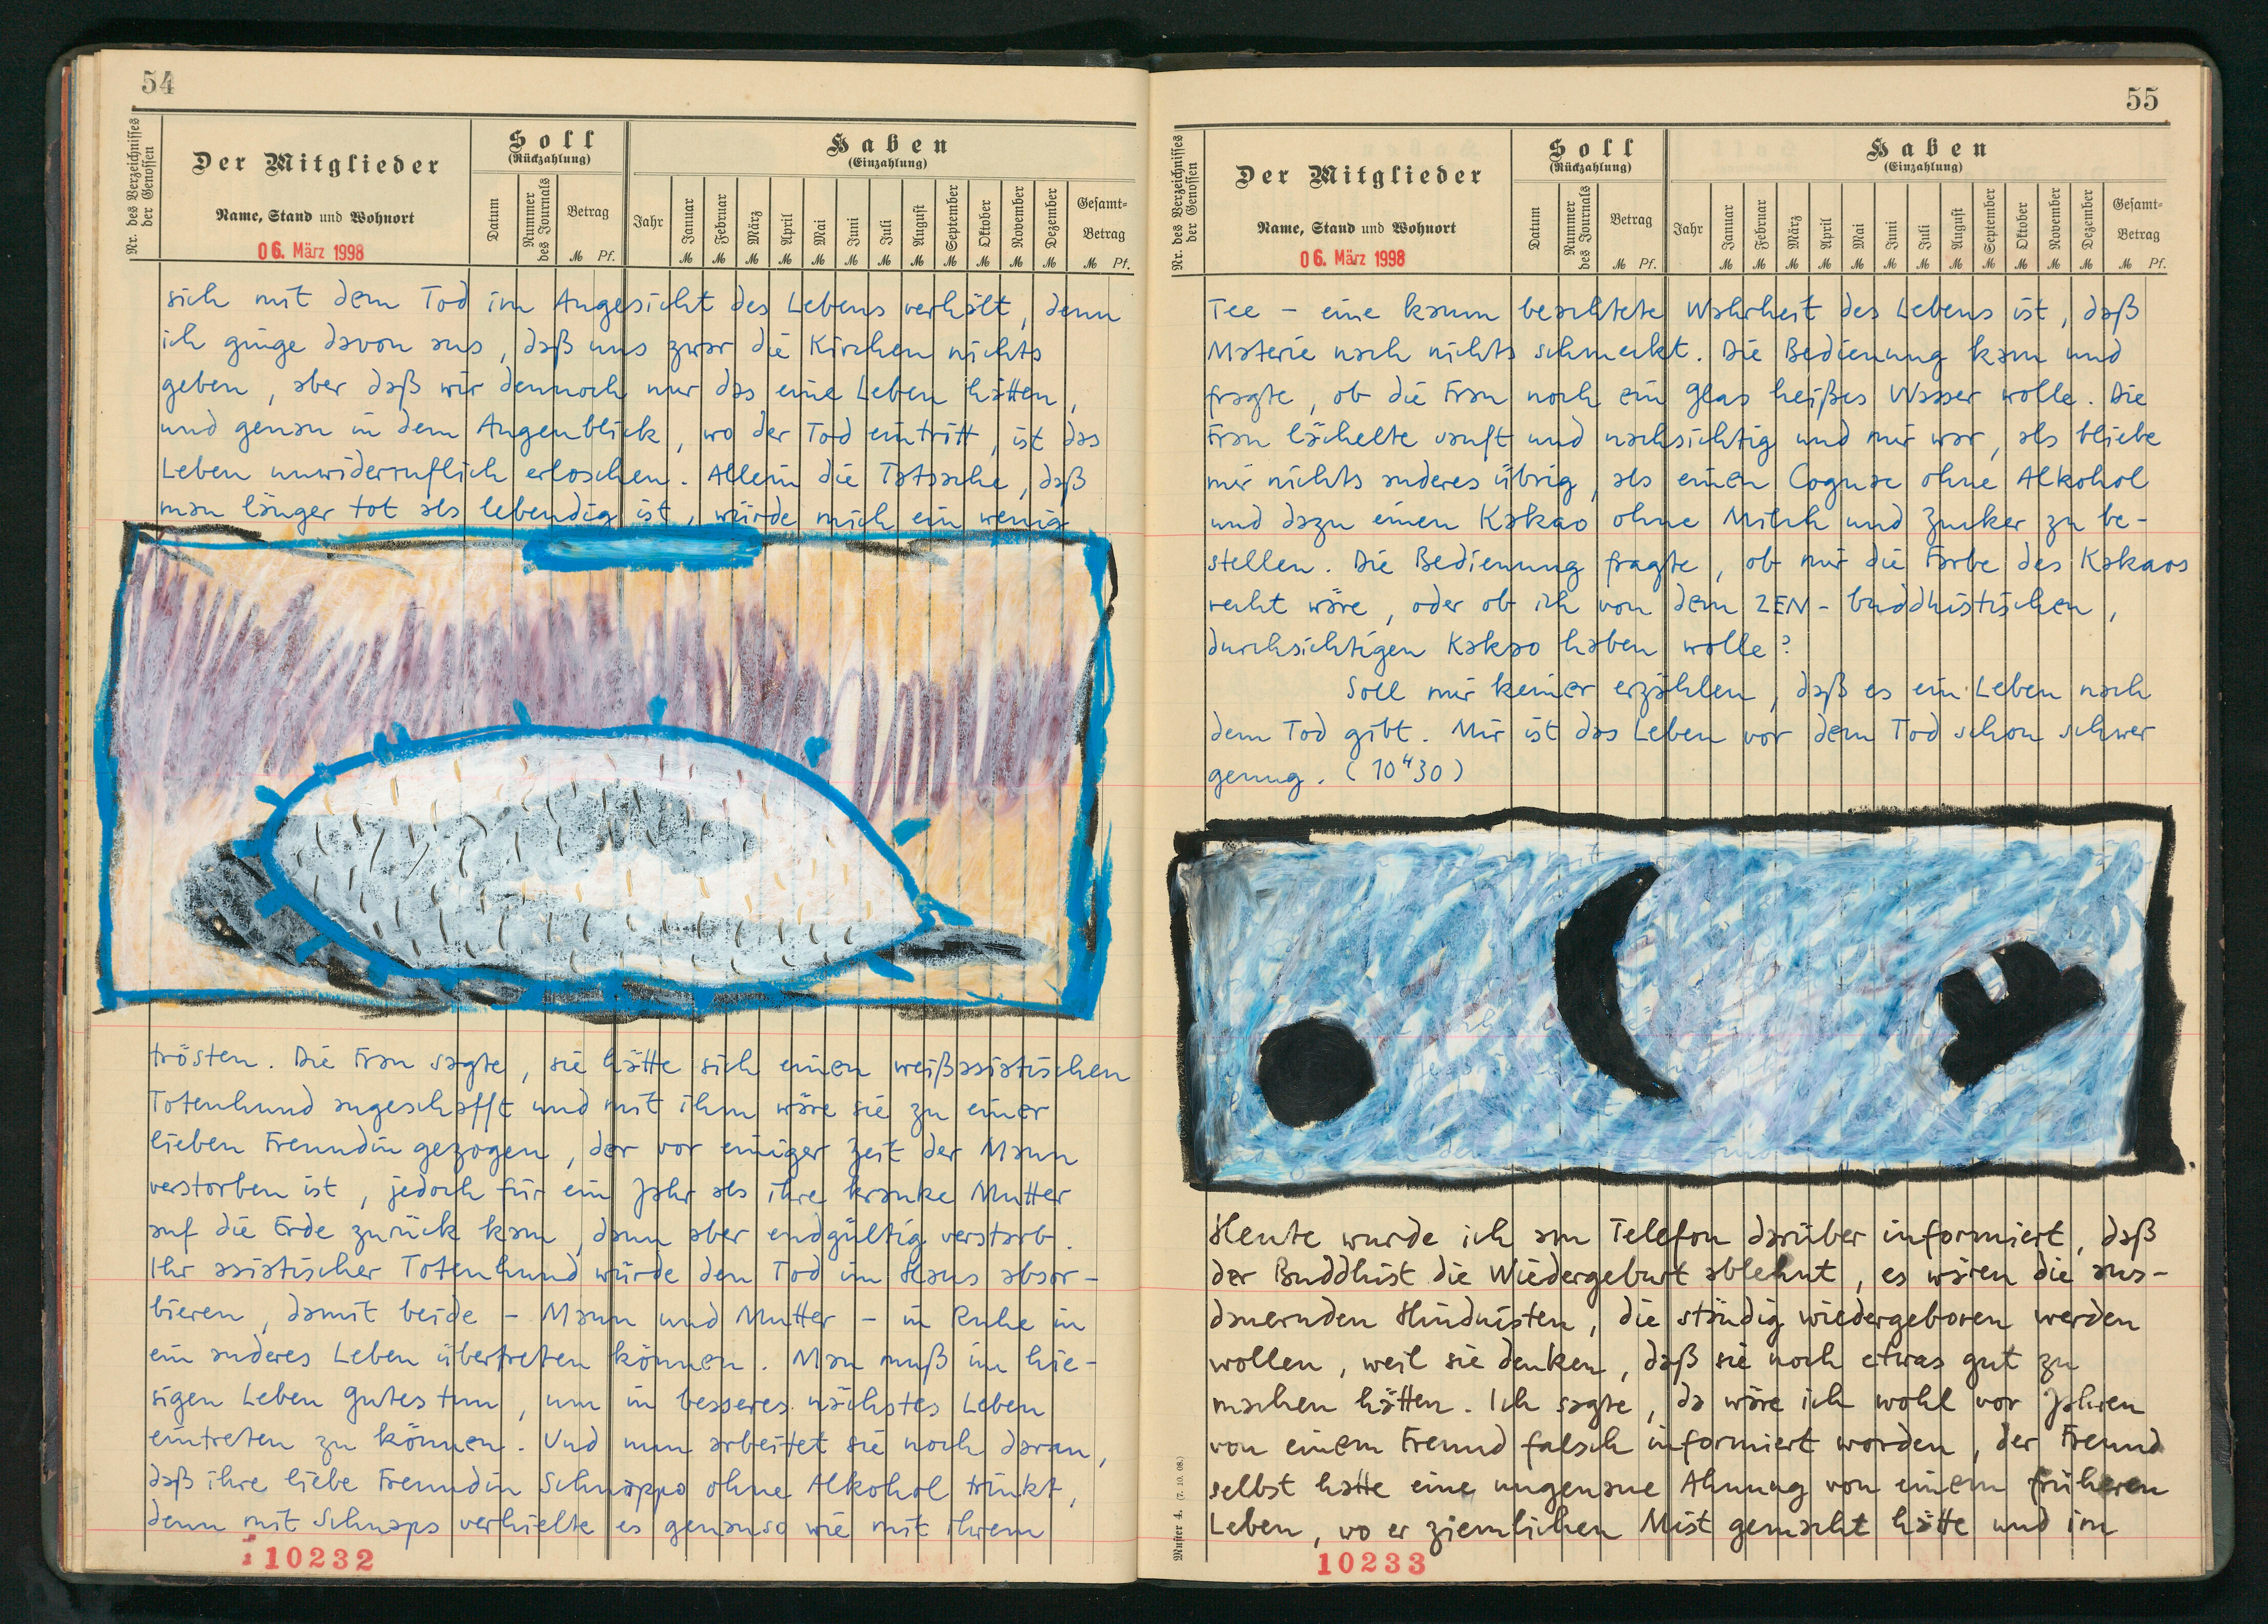 54
Nr. des Verzeichnisses der Genossen
Der Mitglieder
Name, Stand und Wohnort
06. März 1998
Soll
(Rückzahlung)
Datum
Nummer des Journals
Betrag
M Pf.
Haben
(Einzahlung)
Jahr Januar Februar März April Mai Juni Juli August September Oktober November Dezember Gesamt-Betrag
M M M M M M M M M M M M M Pf.
sich mit dem Tod im Angesicht des Lebens verhält, denn
ich ginge davon aus, daß uns zwar die Kirchen nichts
geben, aber daß wir dennoch nur das eine Leben hätten,
und genau in dem Augenblick, wo der Tod eintritt, ist das
Leben unwiderruflich erloschen. Allein die Tatsache, daß
man länger tot als lebendig ist, würde mich ein wenig
trösten. Die Frau sagte, sie hätte sich einen weißasiatischen
Totenhund angeschafft und mit ihm wäre sie zu einer
lieben Freundin gezogen, der vor einiger Zeit der Mann
verstorben ist, jedoch für ein Jahr als ihre kranke Mutter
auf die Erde zurück kam, dann aber endgültig verstarb.
Ihr asiatischer Totenhund würde den Tod im Haus absor-
bieren, damit beide - Mann und Mutter - in Ruhe in
ein anderes Leben übertreten können. Man muß im hie-
sigen Leben gutes tun, um in besseres nächstes Leben
eintreten zu können. Und nun arbeitet sie noch daran,
daß ihre liebe Freundin Schnäppo ohne Alkohol trinkt,
denn mit Schnaps verhielte es genauso wie mit ihrem
10232
55
Nr. des Verzeichnisses der Genossen
Der Mitglieder
Name, Stand und Wohnort
06. März 1998
Soll
(Rückzahlung)
Datum
Nummer des Journals
Betrag
M Pf.
Haben
(Einzahlung)
Jahr Januar Februar März April Mai Juni Juli August September Oktober November Dezember Gesamt-Betrag
M M M M M M M M M M M M M Pf.
Tee - eine kaum beachtete Wahrheit des Lebens ist, daß
Materie nach nichts schmeckt. Die Bedienung kam und
fragte, ob die Frau noch ein Glas heißes Wasser wolle. Die
Frau lächelte sanft und nachsichtig und mir war, als bliebe
mir nichts anderes übrig, als einen Cognac ohne Alkohol
und dazu einen Kakao ohne Milch und Zucker zu be-
stellen. Die Bedienung fragte, ob mir die Farbe des Kakaos
recht wäre, oder ob ich von dem ZEN-buddhistischen,
durchsichtigen Kakao haben wolle?
Soll mir keiner erzählen, daß es ein Leben nach
dem Tod gibt. Mir ist das Leben vor dem Tod schon schwer
genug. (10 H 30)
Heute wurde ich am Telefon darüber informiert, daß
der Buddhist die Wiedergeburt ablehnt, es wären die aus-
dauernden Hinduisten, die ständig wiedergeboren werden
wollen, weil sie denken, daß sie noch etwas gut zu
machen hätten. Ich sagte, da wäre ich wohl vor Jahren
von einem Freund falsch informiert worden, der Freund
selbst hatte eine ungenaue Ahnung von einem früheren
Leben, wo er ziemlichen Mist gemacht hätte und im
Muster 4. (7. 10. 08.)
10233